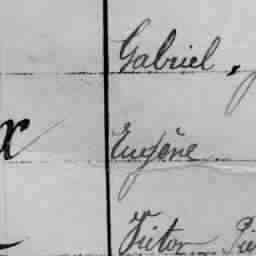 Gabriel,
x Eugène
Victor